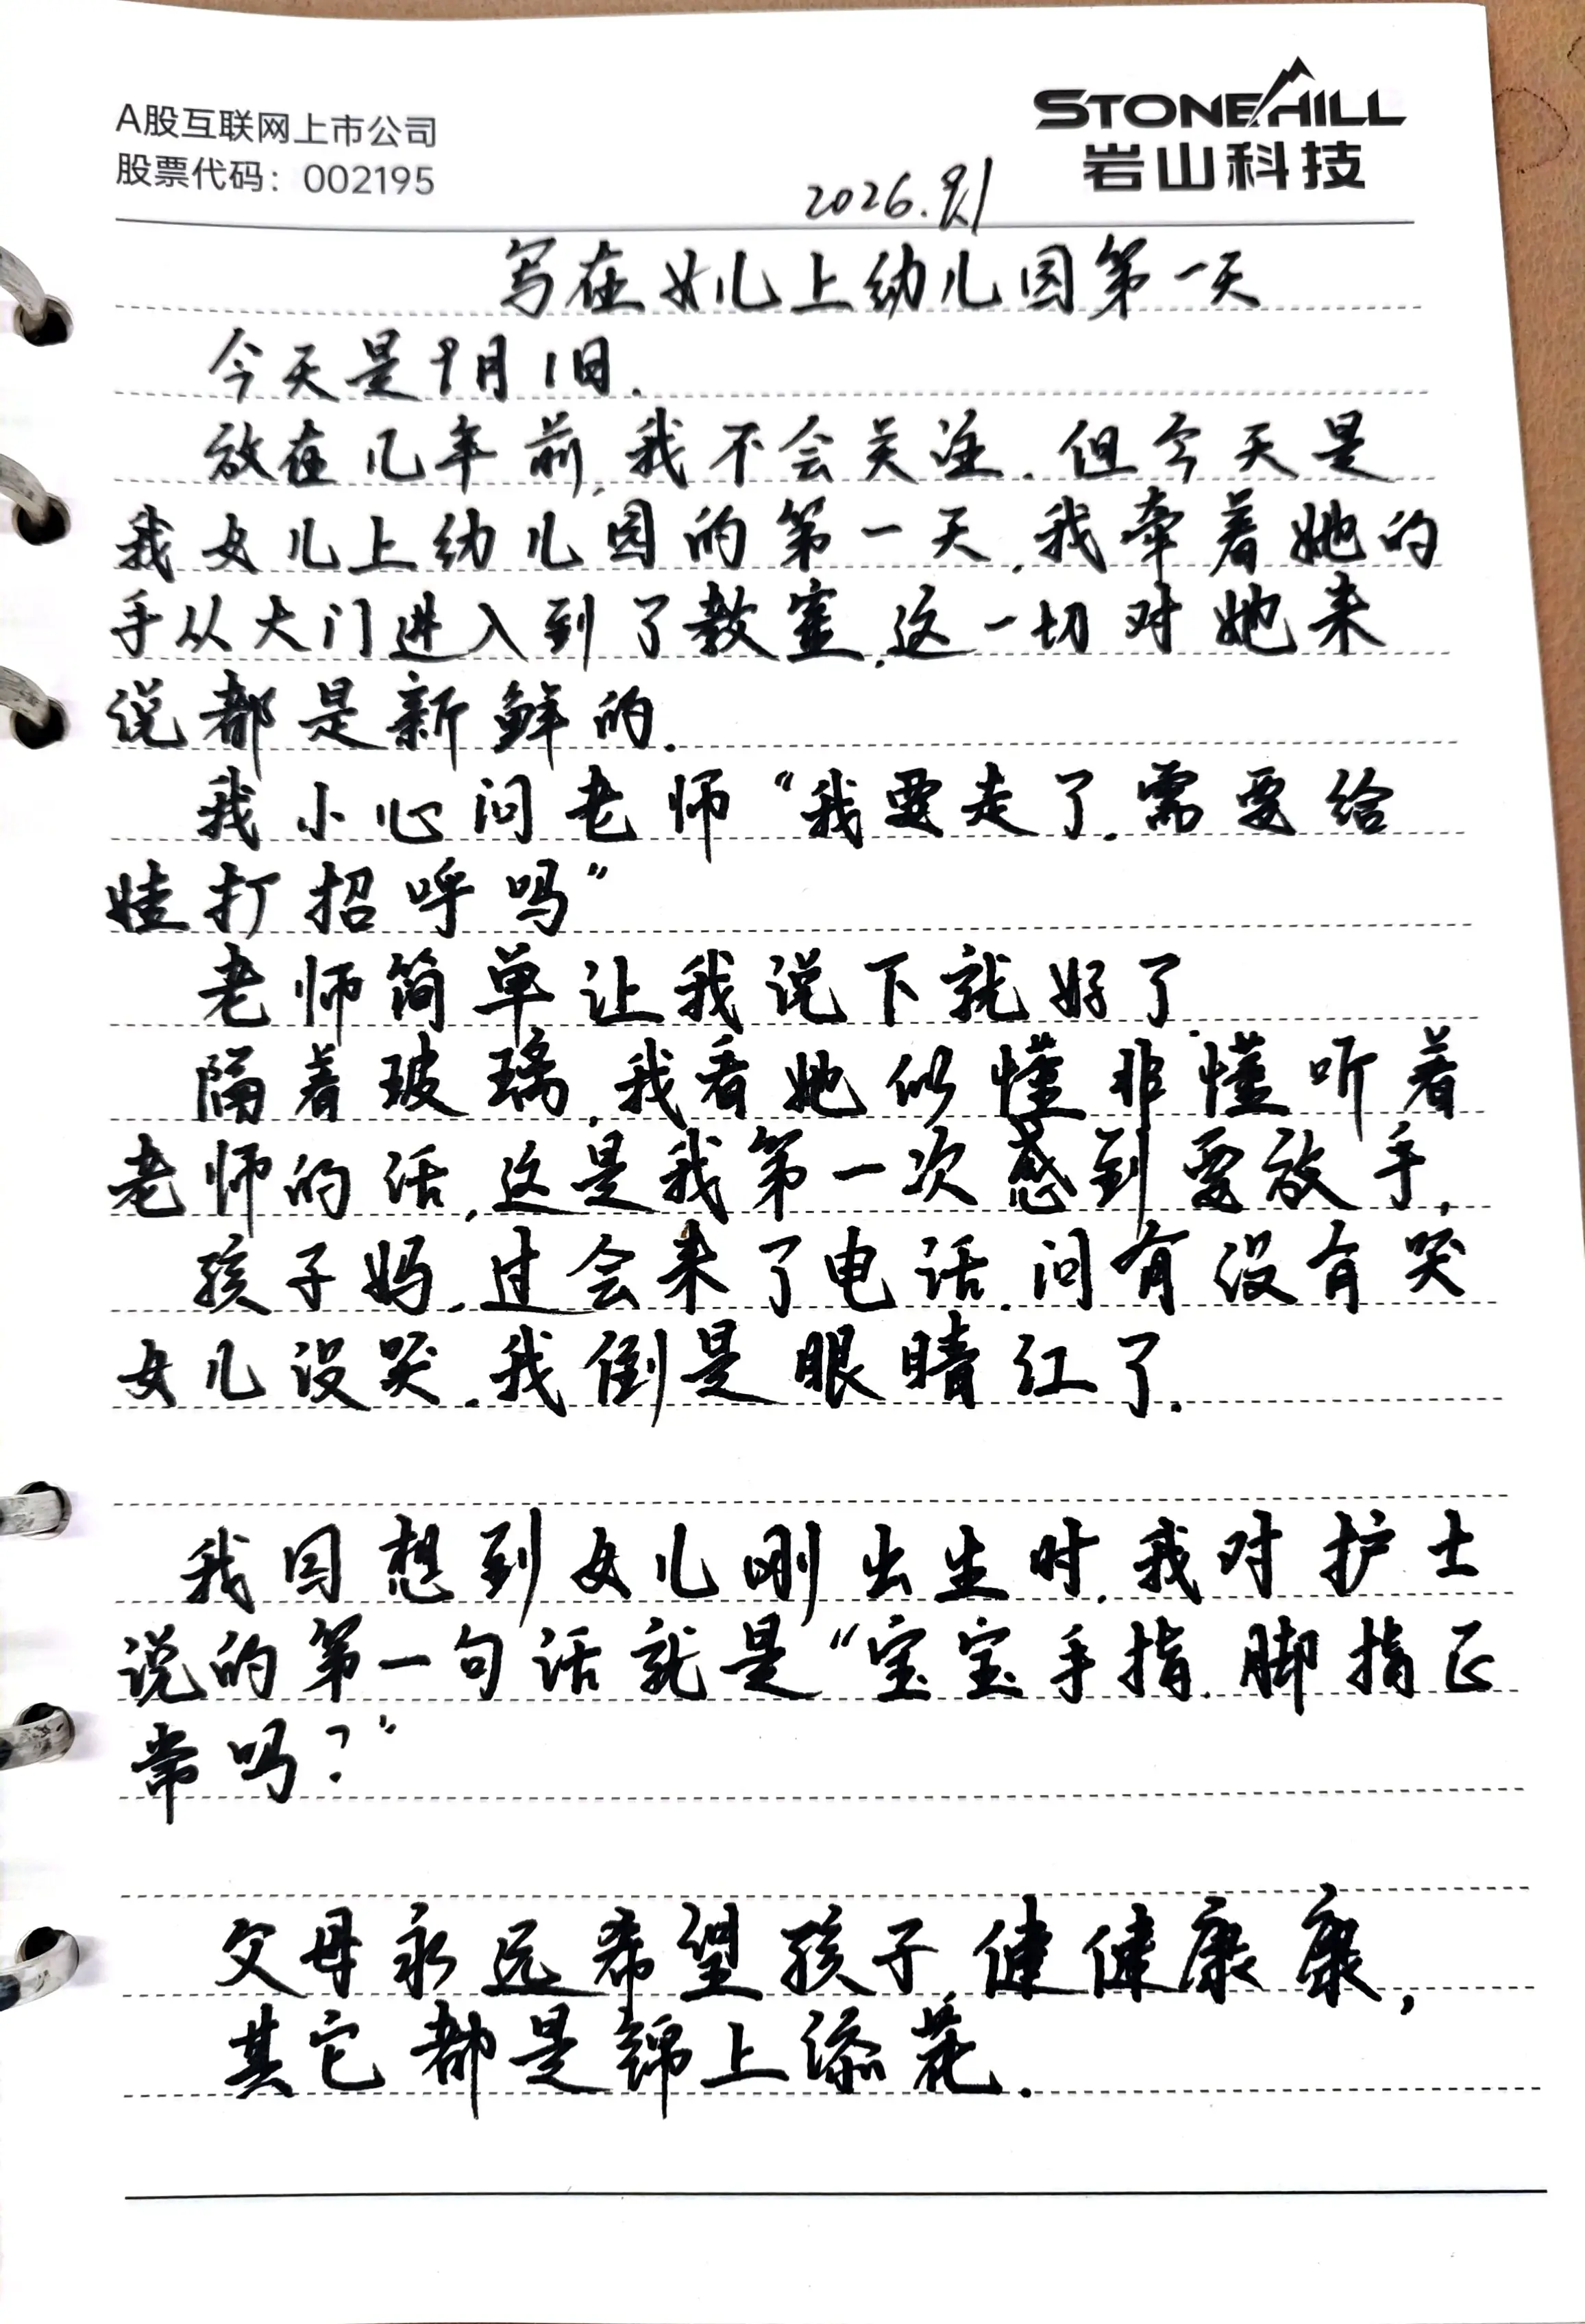 A股互联网上市公司
股票代码：002195
STONEHILL
岩山科技
2026.9.1
写在女儿上幼儿园第一天
今天是9月1日.
放在几年前,我不会关注.但今天是
我女儿上幼儿园的第一天,我牵着她的
手从大门进入到了教室,这一切对她来
说都是新鲜的.
我小心问老师“我要走了.需要给
娃打招呼吗”
老师简单让我说下就好了.
隔着玻璃,我看她似懂非懂听着
老师的话,这是我第一次感到要放手,
孩子妈.过会来了电话.问有没有哭
女儿没哭.我倒是眼睛红了.
我回想到女儿刚出生时.我对护士
说的第一句话就是“宝宝手指.脚指正
常吗?”
父母永远希望孩子健健康康,
其它都是锦上添花.